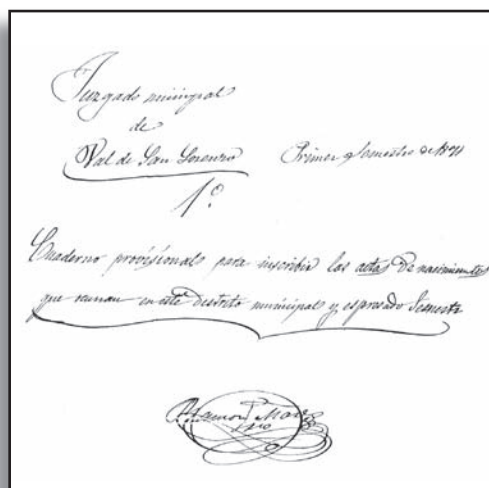 Juzgado municipal
de
Val de San Lorenzo Primer Semestre de 1871
1º
Cuaderno provisional para inscribir las actas de nacimientos
que ocurran en este distrito municipal y espresado Semestre
Ramon